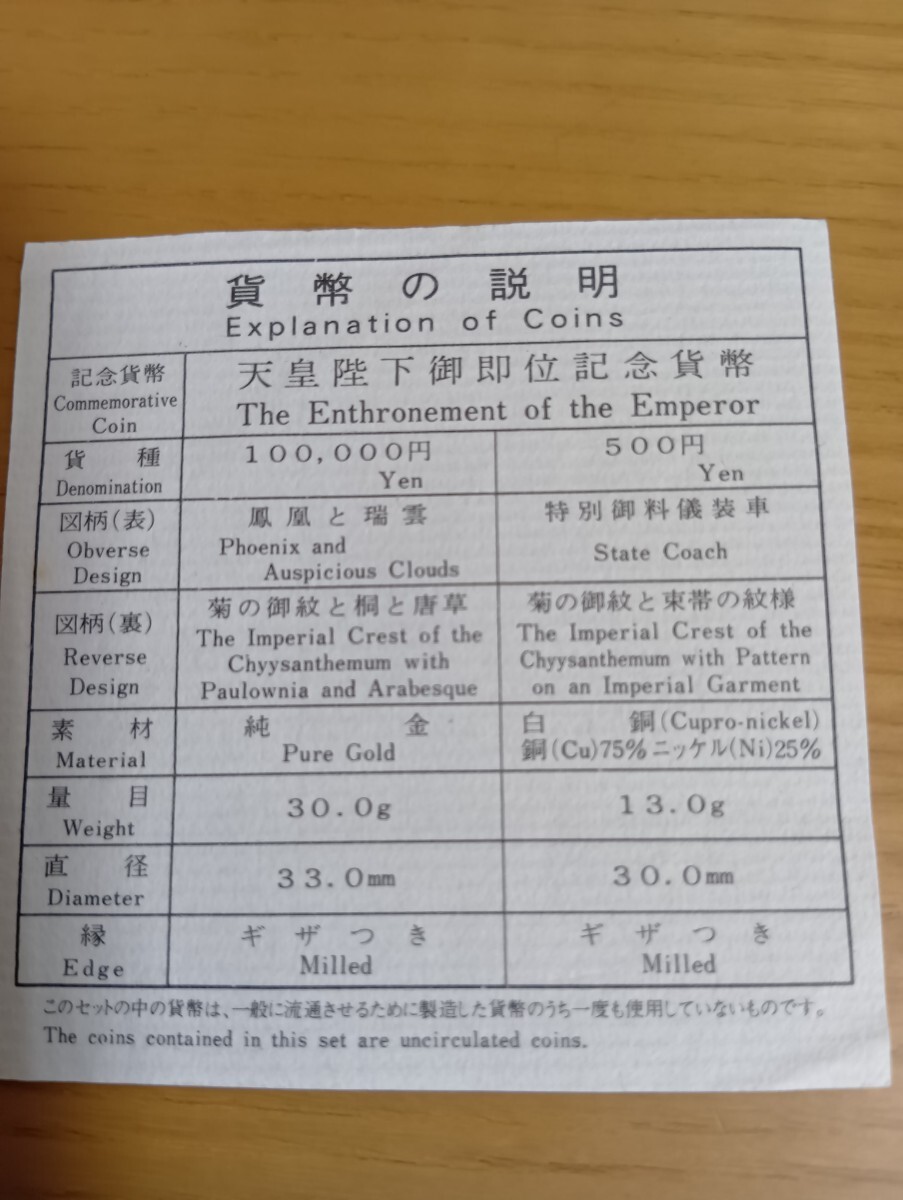 貨幣の説明
Explanation of Coins
記念貨幣
Commemorative
Coin
天皇陛下御即位記念貨幣
The Enthronement of the Emperor
貨種
Denomination
100,000円
Yen
500円
Yen
図柄(表)
Obverse
Design
鳳凰と瑞雲
Phoenix and
Auspicious Clouds
特別御料儀装車
State Coach
図柄(裏)
Reverse
Design
菊の御紋と桐と唐草
The Imperial Crest of the
Chyysanthemum with
Paulownia and Arabesque
菊の御紋と束帯の紋様
The Imperial Crest of the
Chyysanthemum with Pattern
on an Imperial Garment
素材
Material
純金
Pure Gold
白銅(Cupro-nickel)
銅(Cu)75%ニッケル(Ni)25%
量目
Weight
30.0g
13.0g
直径
Diameter
33.0mm
30.0mm
縁
Edge
ギザつき
Milled
ギザつき
Milled
このセットの中の貨幣は、一般に流通させるために製造した貨幣のうち一度も使用していないものです。
The coins contained in this set are uncirculated coins.